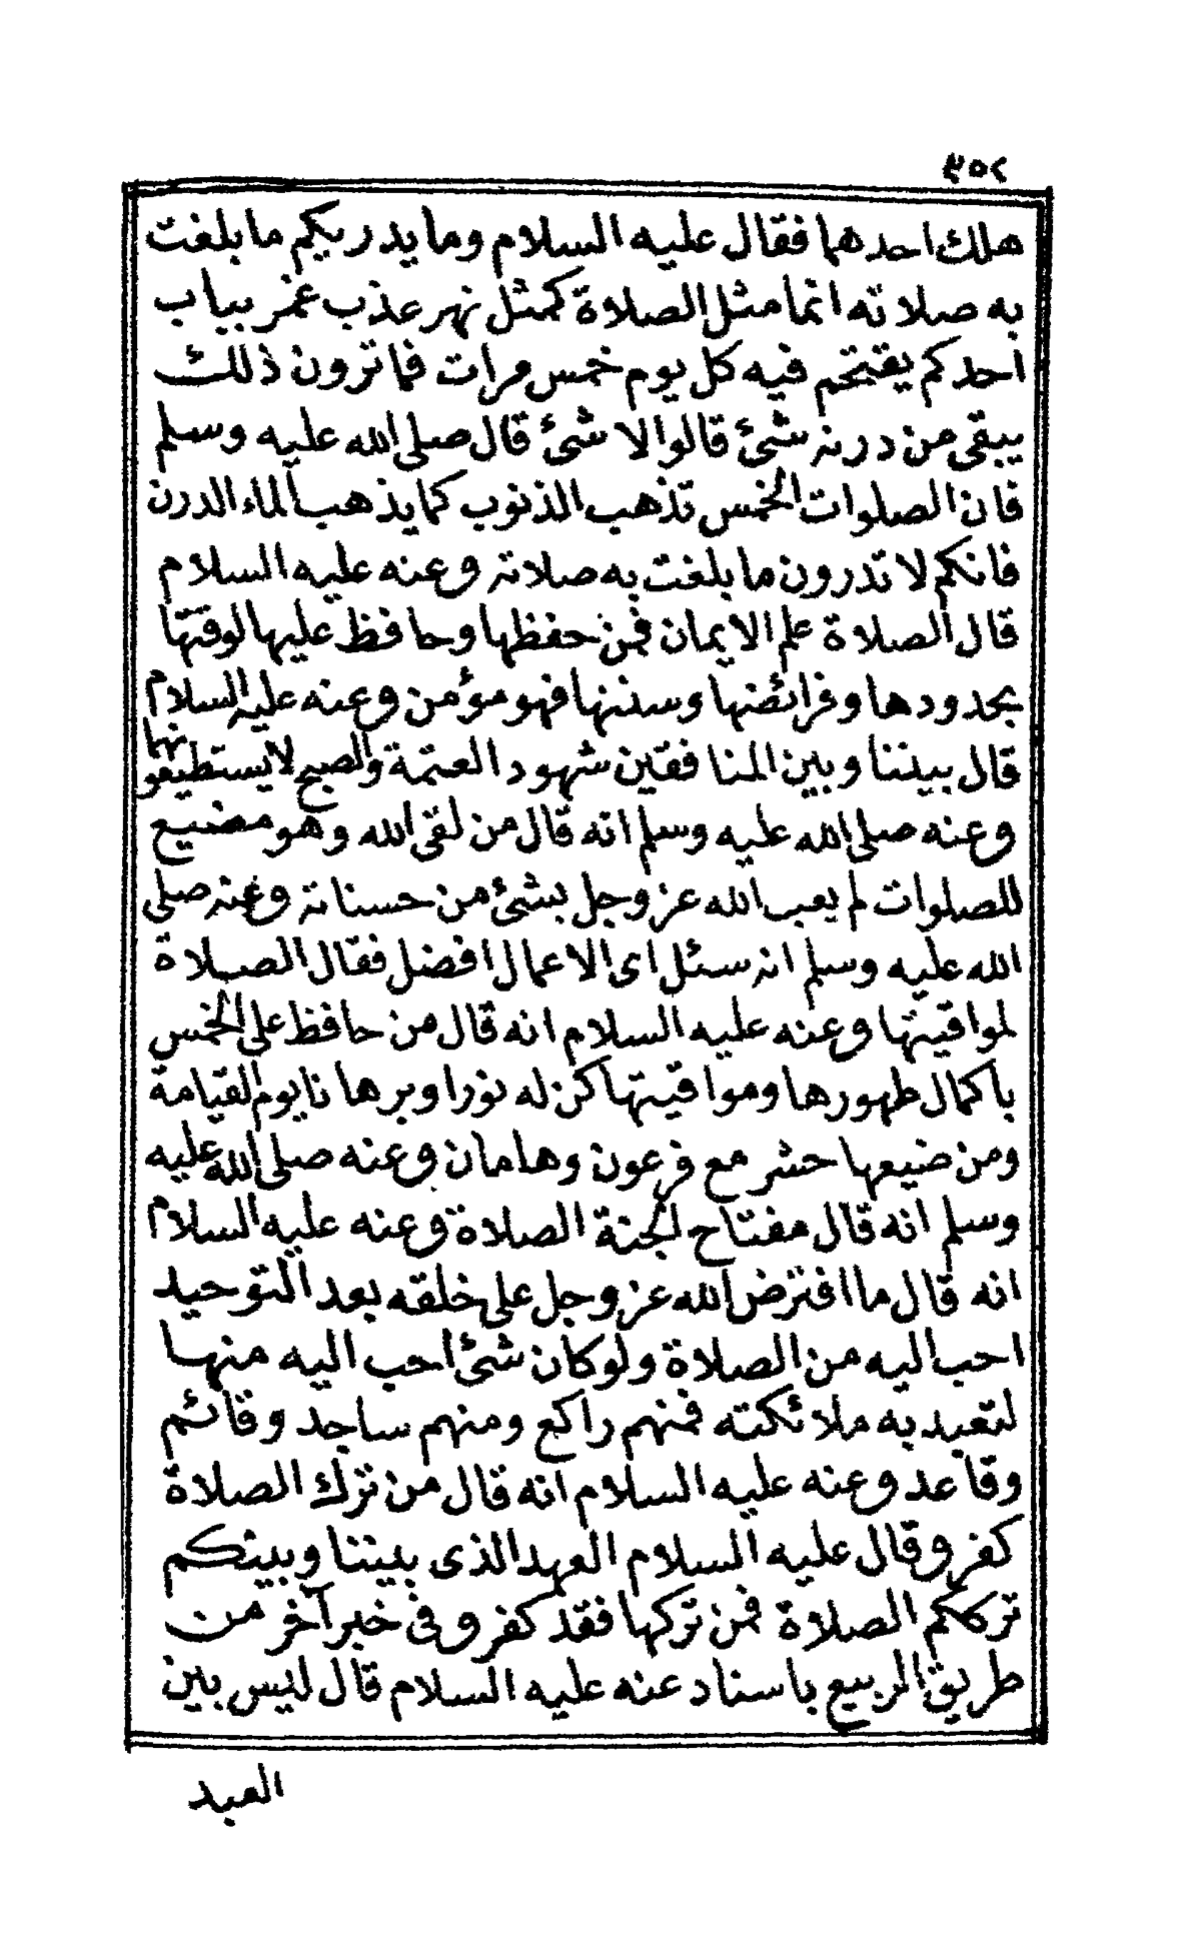 ٣٥٢
هلك احدهما فقال عليه السلام وما يدريكم ما بلغت
به صلاته انما مثل الصلاة كمثل نهر عذب غمر بباب
احدكم يقتحم فيه كل يوم خمس مرات فما ترون ذلك
يبقى من درنه شئ قالوا لا شئ قال صلى الله عليه وسلم
فان الصلوات الخمس تذهب الذنوب كما يذهب الماء الدرن
فانكم لا تدرون ما بلغت به صلاته وعنه عليه السلام
قال الصلاة علم الايمان فمن حفظها وحافظ عليها لوقتها
بحدودها وفرائضها وسننها فهو مؤمن وعنه عليه السلام
قال بيننا وبين المنافقين شهود العتمة والصبح لا يستطيعونهما
وعنه صلى الله عليه وسلم انه قال من لقى الله وهو مضيع
للصلوات لم يعب الله عز وجل بشئ من حسناته وعنه صلى
الله عليه وسلم انه سئل اى الاعمال افضل فقال الصلاة
لمواقيتها وعنه عليه السلام انه قال من حافظ على الخمس
باكمال طهورها ومواقيتها كن له نورا وبرهانا يوم القيامة
ومن ضيعها حشر مع فرعون وهامان وعنه صلى الله عليه
وسلم انه قال مفتاح الجنة الصلاة وعنه عليه السلام
انه قال ما افترض الله عز وجل على خلقه بعد التوحيد
احب اليه من الصلاة ولو كان شئ احب اليه منها
لتعبد به ملائكته فمنهم راكع ومنهم ساجد وقائم
وقاعد وعنه عليه السلام انه قال من ترك الصلاة
كفر وقال عليه السلام العهد الذى بيننا وبينكم
ترككم الصلاة فمن تركها فقد كفر وفى خبر آخر من
طريق الربيع باسناد عنه عليه السلام قال ليس بين
العبد